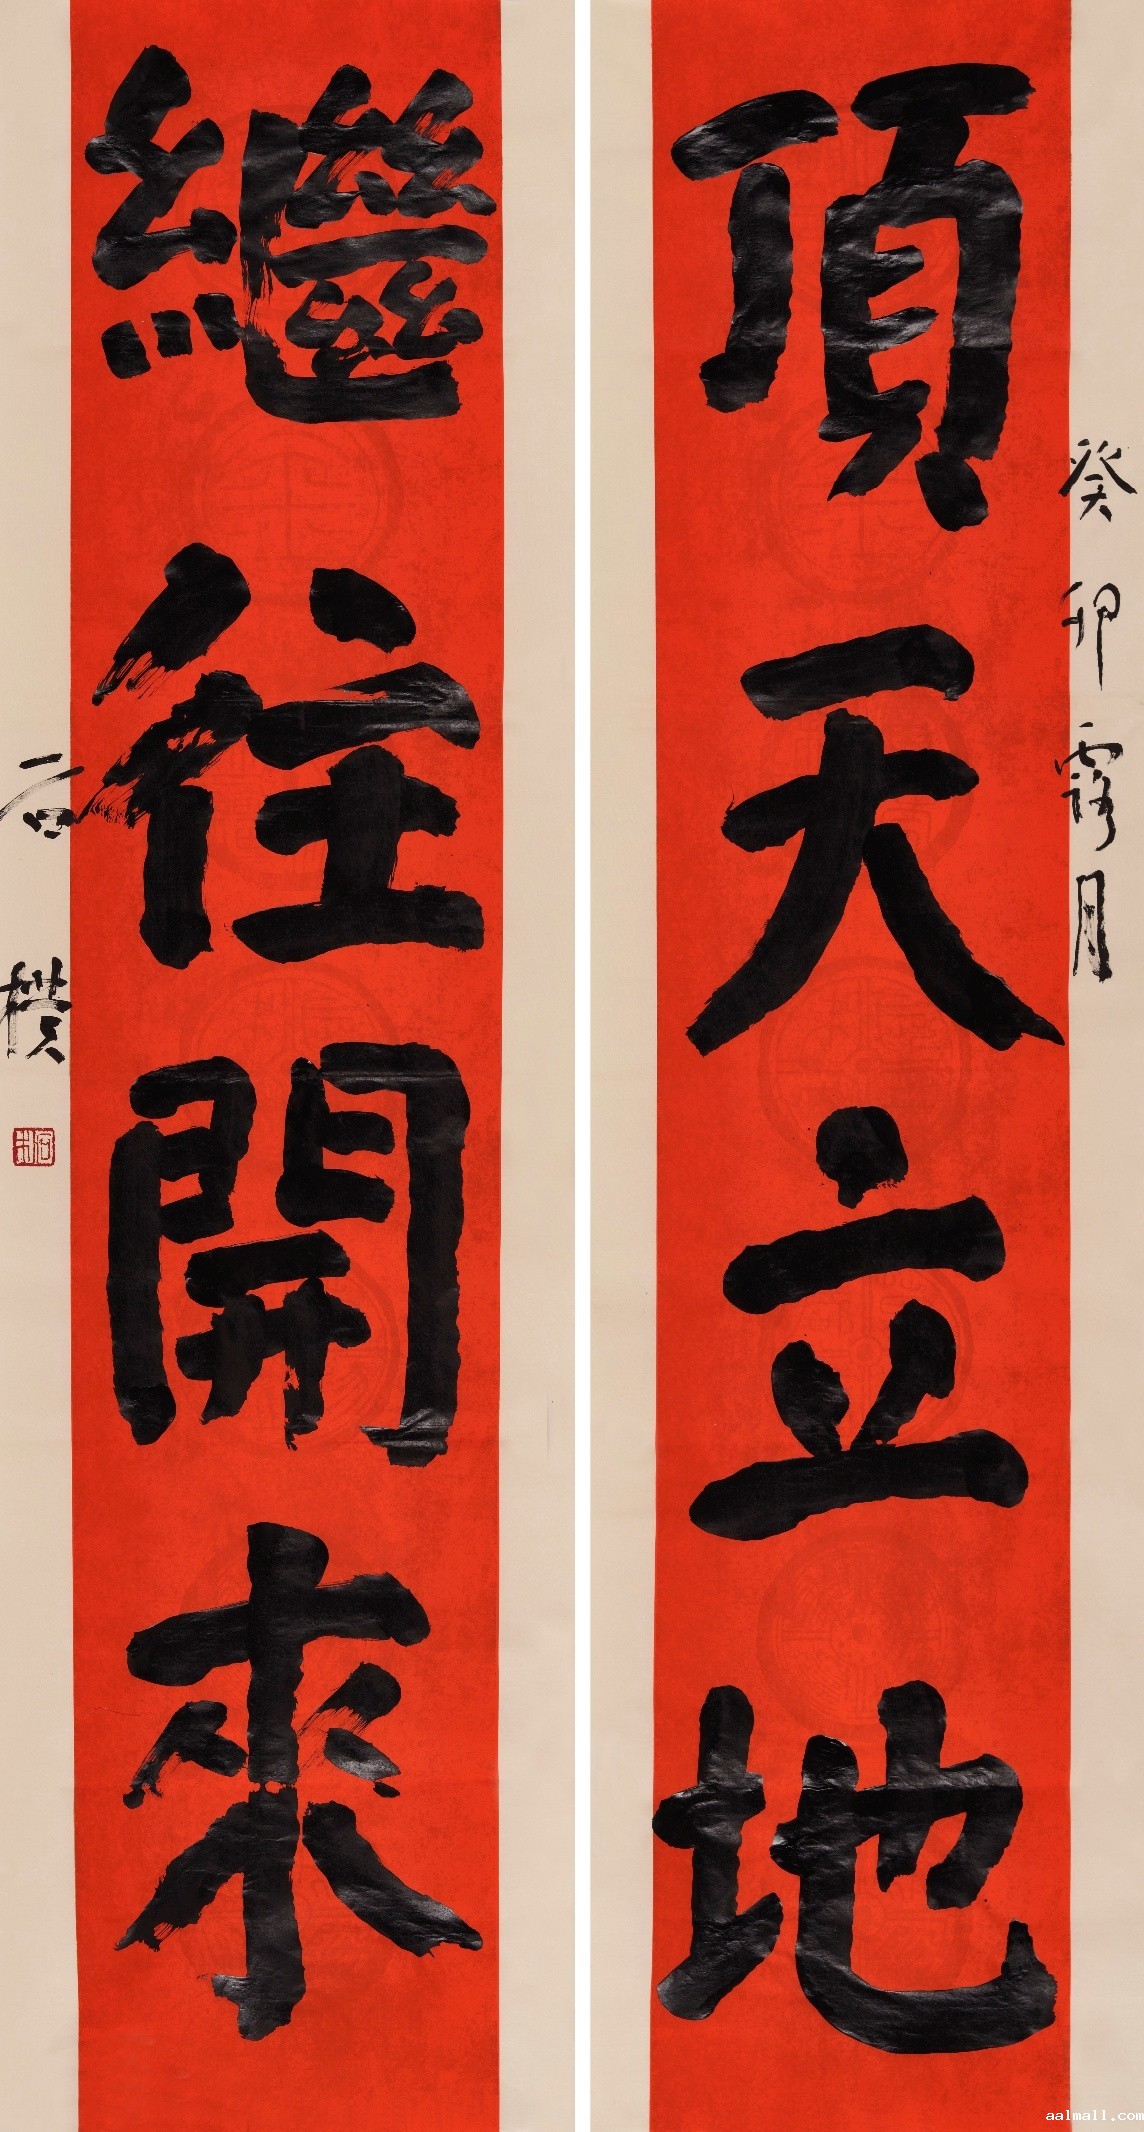 頂天立地
繼往開來
癸卯露月
石樸
aalmall.com